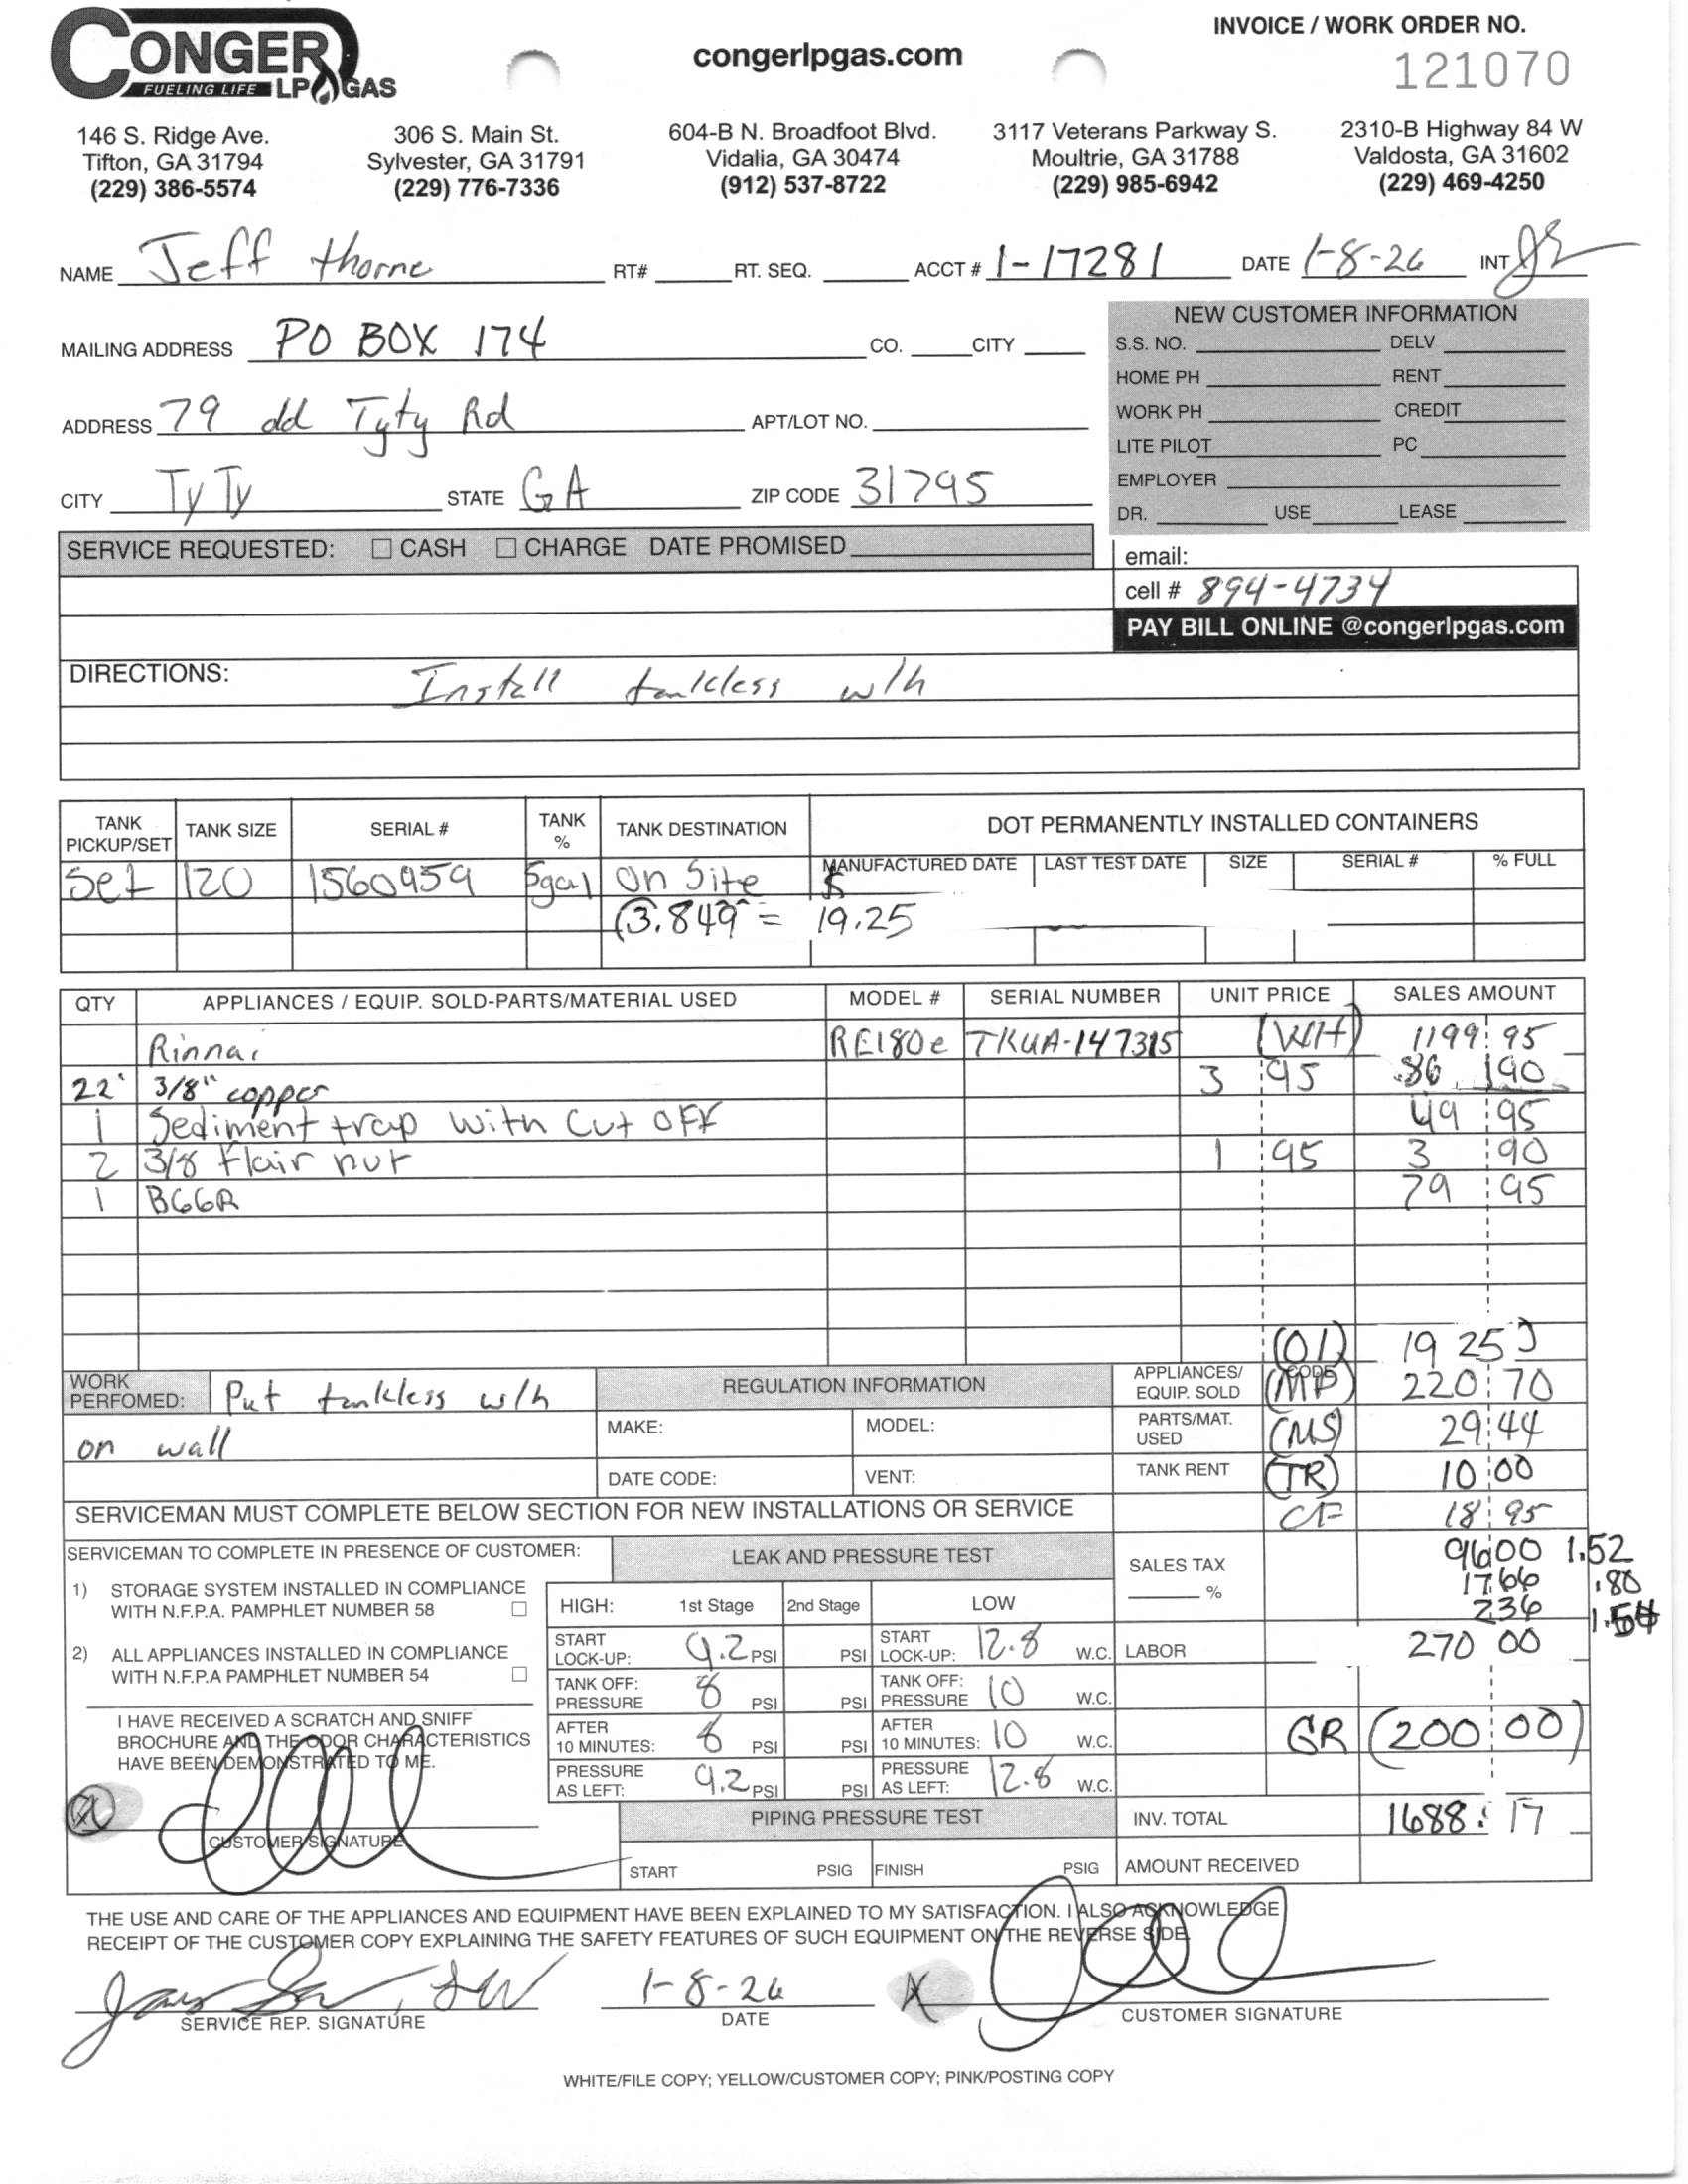 CONGER LP GAS
FUELING LIFE
congerlpgas.com
INVOICE / WORK ORDER NO.
121070
146 S. Ridge Ave.
Tifton, GA 31794
(229) 386-5574
306 S. Main St.
Sylvester, GA 31791
(229) 776-7336
604-B N. Broadfoot Blvd.
Vidalia, GA 30474
(912) 537-8722
3117 Veterans Parkway S.
Moultrie, GA 31788
(229) 985-6942
2310-B Highway 84 W
Valdosta, GA 31602
(229) 469-4250
NAME Jeff thorne RT# RT. SEQ. ACCT # 1-17281 DATE 1-8-26 INT
MAILING ADDRESS PO BOX 174 CO. CITY
ADDRESS 79 old Tyty Rd APT/LOT NO.
CITY Ty Ty STATE GA ZIP CODE 31795
NEW CUSTOMER INFORMATION
S.S. NO. DELV
HOME PH RENT
WORK PH CREDIT
LITE PILOT PC
EMPLOYER
DR. USE LEASE
SERVICE REQUESTED: CASH CHARGE DATE PROMISED
email:
cell # 894-4734
PAY BILL ONLINE @congerlpgas.com
DIRECTIONS: Install tankless w/h
TANK PICKUP/SET TANK SIZE SERIAL # TANK % TANK DESTINATION DOT PERMANENTLY INSTALLED CONTAINERS
MANUFACTURED DATE LAST TEST DATE SIZE SERIAL # % FULL
Set 120 1560959 5gal On Site
(3.849 = 19.25
QTY APPLIANCES / EQUIP. SOLD-PARTS/MATERIAL USED MODEL # SERIAL NUMBER UNIT PRICE SALES AMOUNT
Rinnai RE180e TKUA-147315 (WH) 1199 95
22' 3/8" copper 3 95 86 90
1 Sediment trap with Cut OFF 49 95
2 3/8 flair nut 1 95 3 90
1 B66R 79 95
(01) 19 25
APPLIANCES/ EQUIP. SOLD CODE (MP) 220 70
PARTS/MAT. USED (MS) 29 44
TANK RENT (TR) 10 00
CF 18 95
WORK PERFOMED: Put tankless w/h
on wall
REGULATION INFORMATION
MAKE: MODEL:
DATE CODE: VENT:
SERVICEMAN MUST COMPLETE BELOW SECTION FOR NEW INSTALLATIONS OR SERVICE
SERVICEMAN TO COMPLETE IN PRESENCE OF CUSTOMER:
1) STORAGE SYSTEM INSTALLED IN COMPLIANCE
WITH N.F.P.A. PAMPHLET NUMBER 58
2) ALL APPLIANCES INSTALLED IN COMPLIANCE
WITH N.F.P.A PAMPHLET NUMBER 54
I HAVE RECEIVED A SCRATCH AND SNIFF
BROCHURE AND THE ODOR CHARACTERISTICS
HAVE BEEN DEMONSTRATED TO ME.
X
CUSTOMER SIGNATURE
LEAK AND PRESSURE TEST
HIGH: 1st Stage 2nd Stage LOW
START LOCK-UP: 9.2 PSI PSI START LOCK-UP: 12.8 W.C.
TANK OFF: PRESSURE 8 PSI PSI TANK OFF: PRESSURE 10 W.C.
AFTER 10 MINUTES: 8 PSI PSI AFTER 10 MINUTES: 10 W.C.
PRESSURE AS LEFT: 9.2 PSI PSI PRESSURE AS LEFT: 12.8 W.C.
PIPING PRESSURE TEST
START PSIG FINISH PSIG
SALES TAX %
96 00 1.52
17.66 .80
236
LABOR 270 00
GR (200 00)
INV. TOTAL 1688 17
AMOUNT RECEIVED
THE USE AND CARE OF THE APPLIANCES AND EQUIPMENT HAVE BEEN EXPLAINED TO MY SATISFACTION. I ALSO ACKNOWLEDGE
RECEIPT OF THE CUSTOMER COPY EXPLAINING THE SAFETY FEATURES OF SUCH EQUIPMENT ON THE REVERSE SIDE.
1-8-26 X
SERVICE REP. SIGNATURE DATE CUSTOMER SIGNATURE
WHITE/FILE COPY; YELLOW/CUSTOMER COPY; PINK/POSTING COPY